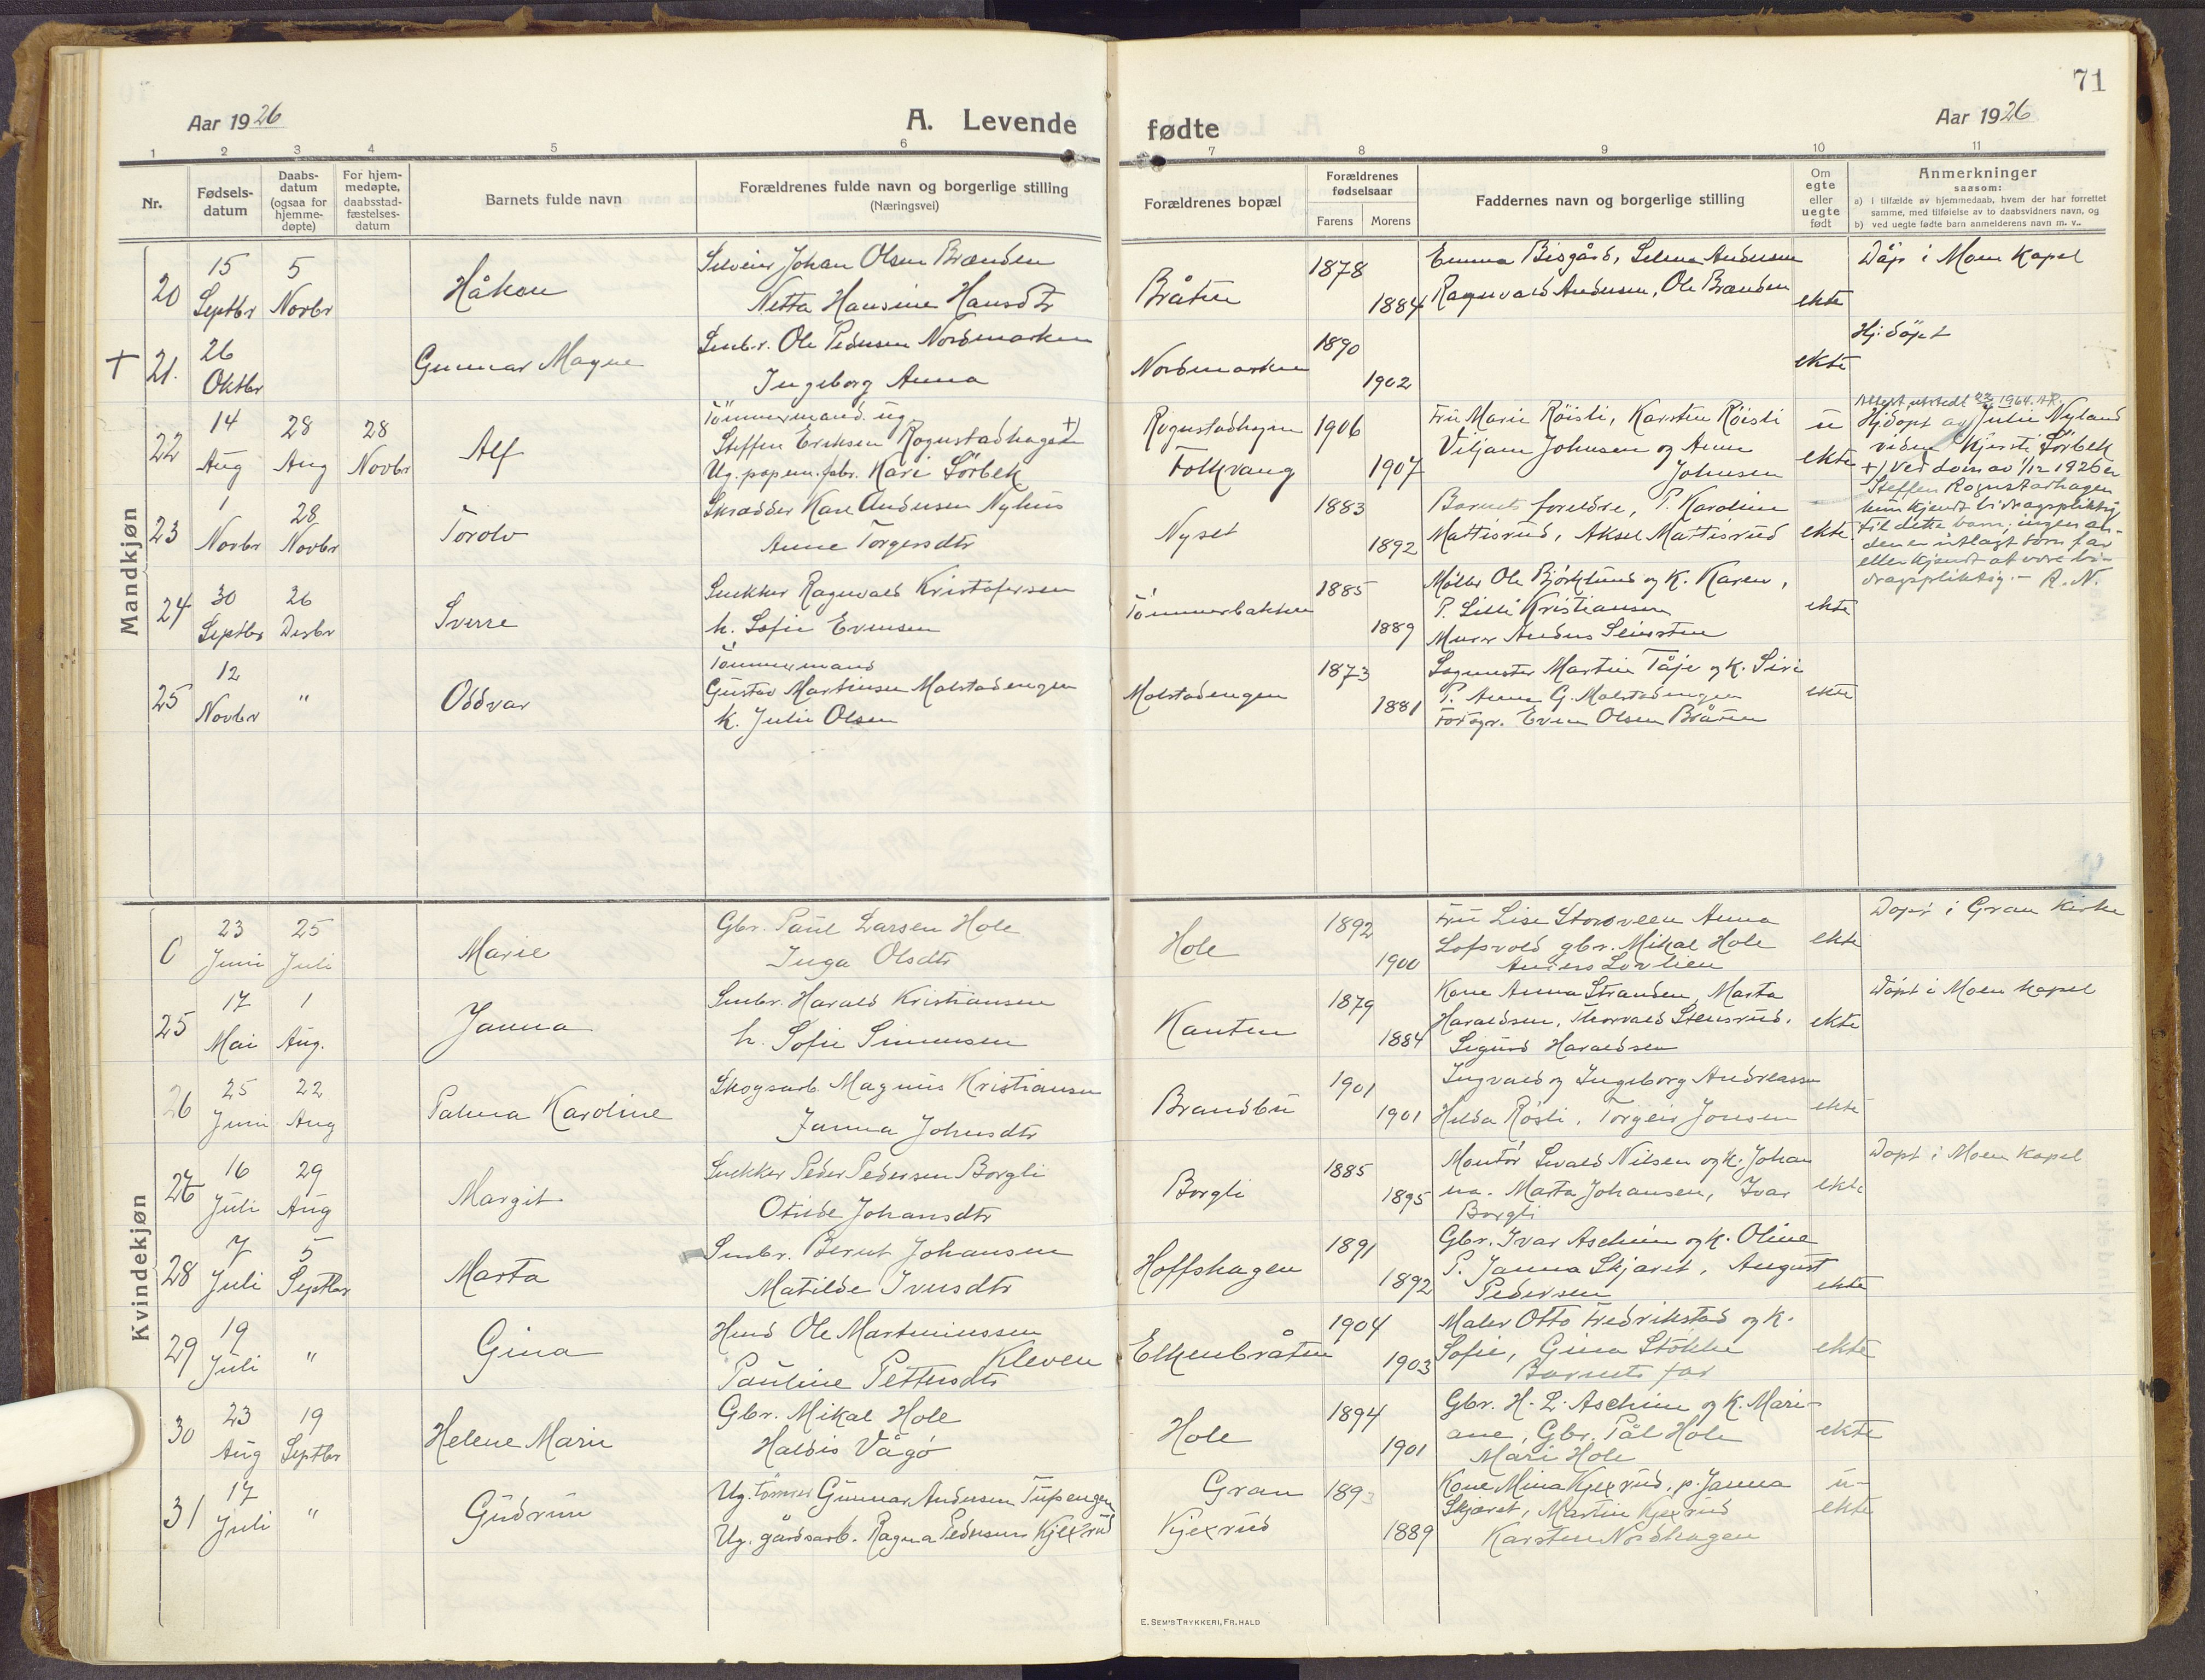 71
Aar 1926
A. Levende
fødte
Aar 1926
1 2 3 4 5 6 7 8 9 10 11
Nr.
Fødsels-
datum
Daabs-
datum
(ogsaa for
hjemme-
døpte)
For hjem-
medøpte,
daabsstad-
fæstelses-
datum
Barnets fulde navn
Forældrenes fulde navn og borgerlige stilling
(Næringsvei)
Forældrenes bopæl
Forældrenes
fødselsaar
Farens Morens
Faddernes navn og borgerlige stilling
Om
egte
eller
uegte
født
Anmerkninger
saasom:
a) i tilfælde av hjemmedaab, hvem der har forrettet
samme, med tilføielse av to daabsvidners navn, og
b) ved uegte fødte barn anmelderens navn m. v..
Mandkjøn
20
15 Septbr
5 Novbr
Håkon
Johan Olsen Brænden
Netta Hansine Hansdtr
Bråten
1878
1884
Emma Bisgård, Selma Andersen
Ragnvald Andersen, Ole Brænden
ekte
Døpt i Moen Kapel
+ 21.
26 Oktbr
Gunnar Magne
Smbr. Ole Pedersen Nordmarken
Ingeborg Anna
Nordmarken
1890
1902
ekte
Hj. döpt
22
14 Aug
28 Aug
28 Novbr
Alf
Tömmermand. ug.
Steffen Eriksen Rognstadhagen +)
Ug. pap em. fabr. Kari Sörbek
Rognstadhagen
Folkvang
1906
1907
Fru Marie Röisli, Karsten Röisli
Viljam Johnsen og Anna
Johnsen
u
ekte
Attest utstedt 1964. AR.
Hjdöpt av Julie Nyland
viden Kjersti Sörbek
+) Ved dom av 1/12 1926 er
Steffen Rognstadhagen
kun kjendt bidragspliktig
til dette barn; ingen an-
den er utlagt som far
eller kjendt at være bi-
dragspliktig. - A. N.
23
1 Novbr
28 Novbr
Torolv
Skrædder Karl Andersen Nyhus
Anne Torgersdtr
Nyset
1883
1892
Barnets foreldre, P. Karoline
Mattisrud, Aksel Mattisrud
ekte
24
30 Septbr
26 Desbr
Sverre
Snekker Ragnvald Kristofersen
h. Sofie Evensen
Tömmerbakken
1885
1889
Möller Ole Björklund og K. Karen,
P. Lilli Kristiansen
Murer Anders Seiersten
ekte
25
12 Novbr
"
Oddvar
Tömmermand
Gustav Martinsen Molstadengen
K. Julie Olsen
Molstadengen
1873
1881
Sagmester Martin Tåje og K. Siri
P. Anna G. Molstadengen
Fotogr. Even Olsen Bråten
ekte
Kvindekjøn
23 Juni
25 Juli
Marie
Gbr. Paul Larsen Hole
Inga Olsdtr
Hole
1892
1900
Fru Lise Storoveen Anna
Lofsvold gbr. Mikal Hole
Anders Lovlien
ekte
Døpt i Gran Kirke
25
17 Mai
1 Aug.
Janna
Smbr. Harald Kristiansen
h. Sofie Simensen
Kanten
1879
1884
Kone Anna Stranden, Marta
Haraldsen, Thorvald Stensrud.
Sigurd Haraldsen
ekte
Döpt i Moen Kapel
26
25 Juni
22 Aug
Palma Karoline
Skogsarb. Magnus Kristiansen
Janna Johnsdtr
Brandbu
1901
1901
Ingvald og Ingeborg Andreassen
Hilda Rösli, Torgeir Jonsen
ekte
27
16 Juli
29 Aug
Margit
Snekker Peder Pedersen Borgli
Otilde Johansdtr
Borgli
1885
1895
Montör Sevald Nilsen og K. Johan
na. Marta Johansen, Ivar
Borgli
ekte
Döpt i Moen Kapel
28
7 Juli
5 Septbr
Marta
Smbr. Bernt Johansen
Matilde Iversdtr
Hoffshagen
1891
1892
Gbr. Ivar Aschim og K. Oline
P. Janna Skjaret, August
Pedersen
ekte
29
19 Juli
"
Gina
Ole Martiniussen
Kleven
Pauline Pettersdtr
Elkenbråten
1904
1903
Maler Otto Fredrikstad og K.
Sofie, Gina Stokke
Barnets far
ekte
30
23 Aug
19 Septbr
Helene Marie
Gbr. Mikal Hole
Haldis Vågö
Hole
1894
1901
Gbr. H. L. Aschim og K. Mari-
ane, Gbr. Pål Hole
Mari Hole
ekte
31
17 Juli
"
Gudrun
Ug. tömmer Gunnar Andersen Tufsengen
Ug. gårdsarb. Ragna Pedersen Kjexrud
Gran
Kjexrud
1893
1889
Kone Mina Kjexrud, p. Janna
Skjæret, Martin Kjexrud
Karsten Nordhagen
u-
ekte
E. SEM'S TRYKKERI, FR.HALD